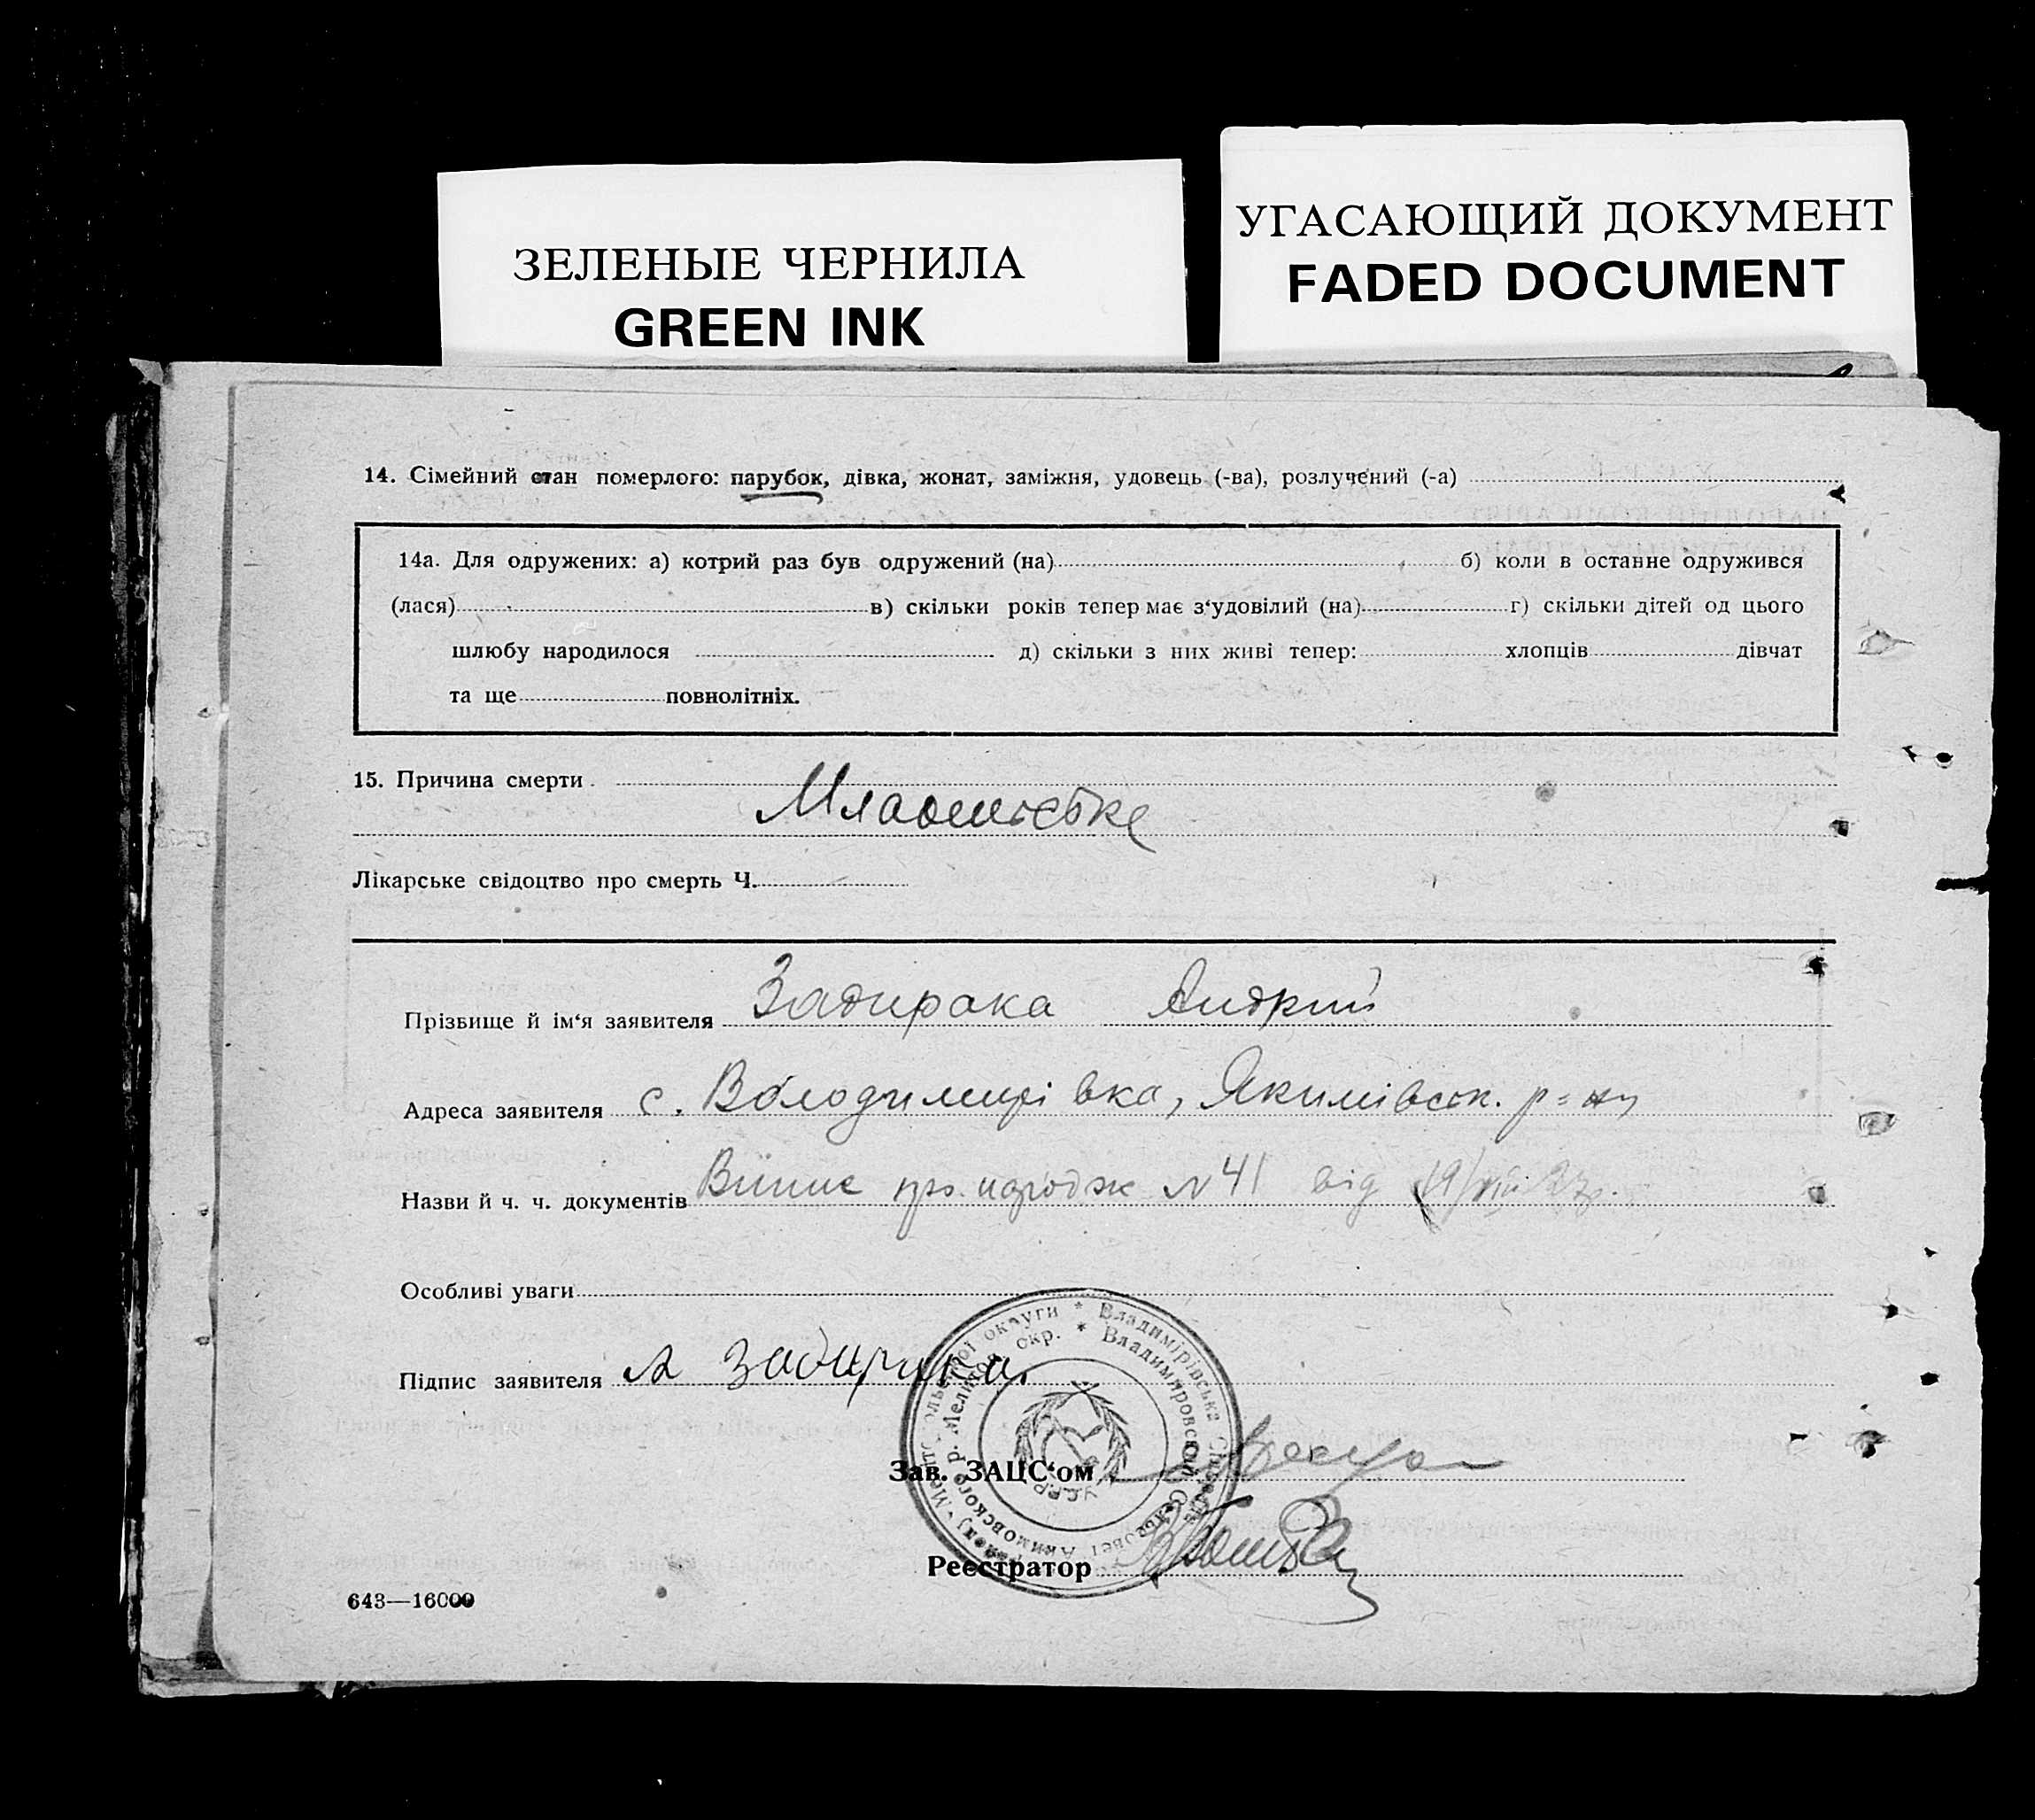 ЗЕЛЕНЫЕ ЧЕРНИЛА
GREEN INK
УГАСАЮЩИЙ ДОКУМЕНТ
FADED DOCUMENT
14. Сімейний стан померлого: парубок, дівка, жонат, заміжня, удовець (-ва), розлучений (-а)
14а. Для одружених: а) котрий раз був одружений (на) б) коли в останне одружився
(лася) в) скільки років тепер має з‘удовілий (на) г) скільки дітей од цього
шлюбу народилося д) скільки з них живі тепер: хлопців дівчат
та ще повнолітніх.
15. Причина смерти
Лікарське свідоцтво про смерть Ч.
Прізбище й ім‘я заявителя Задирака Андрий
Адреса заявителя с. Володимирівка, Якимівськ. р-ну
Назви й ч. ч. документів про народж № 41 від 19/VIII 27р.
Особливі уваги
Підпис заявителя А Задирака
* Владимірівська округи
* Владимировский Сельсовет Акимовского р. Мелитоп. окр.
У.С.Р.Р.
Зав. ЗАЦС‘ом
Реєстратор
643—16000